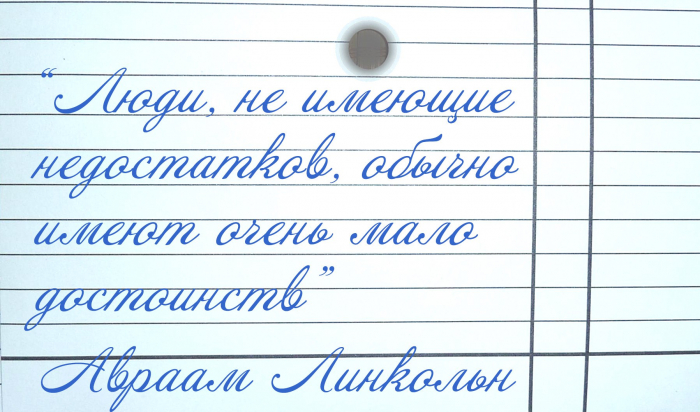 “Люди, не имеющие
недостатков, обычно
имеют очень мало
достоинств”
Авраам Линкольн